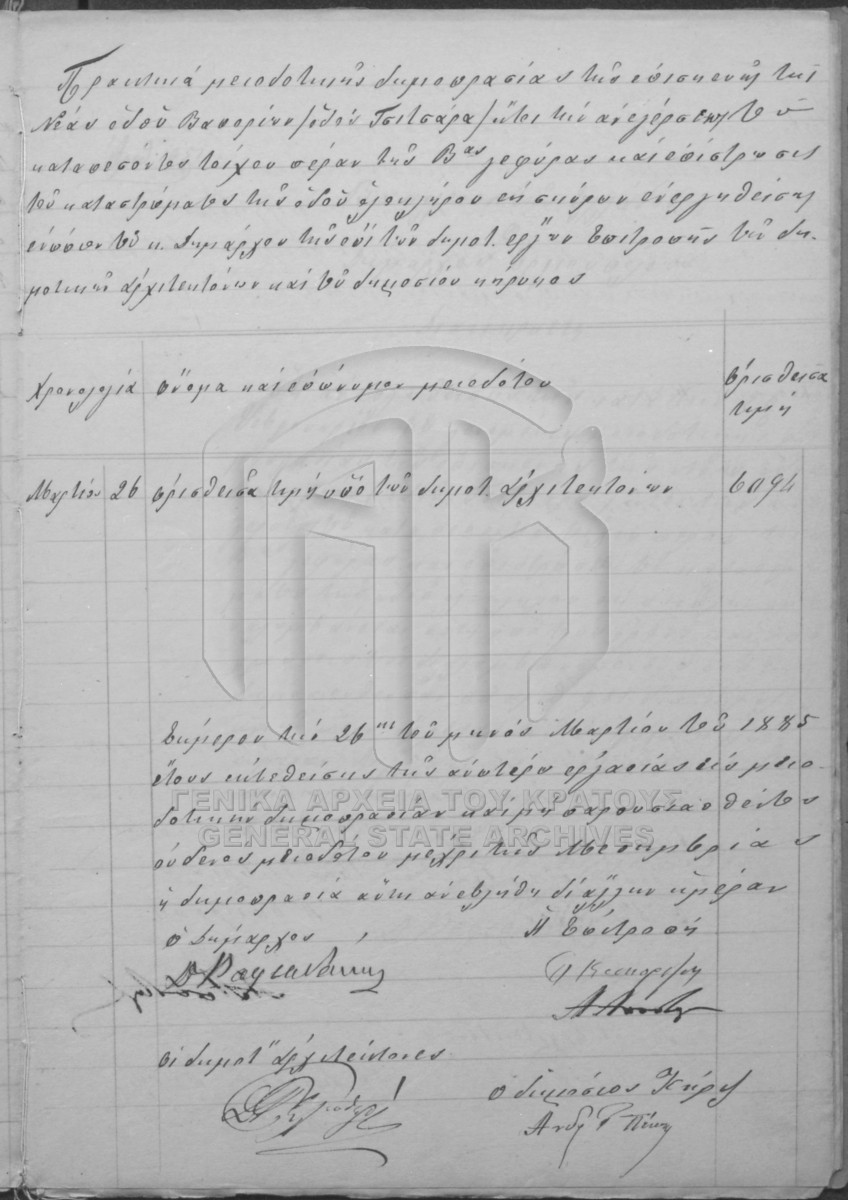 Πρακτικά μειοδοτικῆς δημοπρασίας τῆς ἐπισκευῆς τῆς
Νέας ὁδοῦ Βαπορίων / ὁδός Τσιτσάρα / ἤτοι τήν ἀνέγερσιν τοῦ
καταπεσόντος τοίχου πέραν τῆς Βας γεφύρας καί ἐπίστρωσις
τοῦ καταστρώματος τῆς ὁδοῦ ὁλοκλήρου ἐκ σκύρων ἐνεργηθείσης
ἐνώπιον τοῦ κ. Δημάρχου τῆς ἐπί τῶν δημοτ. ἔργων Ἐπιτροπῆς τῶν δη-
μοτικῶν ἀρχιτεκτόνων καί τοῦ δημοσίου κήρυκος
Χρονολογία ὄνομα καί ἐπώνυμον μειοδότου ὁρισθεῖσα
τιμή
Μαρτίου 26 ὁρισθεῖσα τιμή ὑπό τῶν δημοτ. ἀρχιτεκτόνων
Σήμερον τήν 26ην τοῦ μηνός Μαρτίου τοῦ 1885
ἔτους ἐκτεθείσης τῆς ἀνωτέρω ἐργασίας εἰς μειο-
δοτικήν δημοπρασίαν καί μή παρουσιασθέντος
οὐδενός μειοδότου μέχρι τῆς Μεσημβρίας
ἡ δημοπρασία αὕτη ἀνεβλήθη δι' ἄλλην ἡμέραν
ὁ Δήμαρχος Ἡ Ἐπιτροπή
οἱ δημοτ. ἀρχιτέκτονες
ὁ δημόσιος Κήρυξ
ΓΕΝΙΚΑ ΑΡΧΕΙΑ ΤΟΥ ΚΡΑΤΟΥΣ
GENERAL STATE ARCHIVES